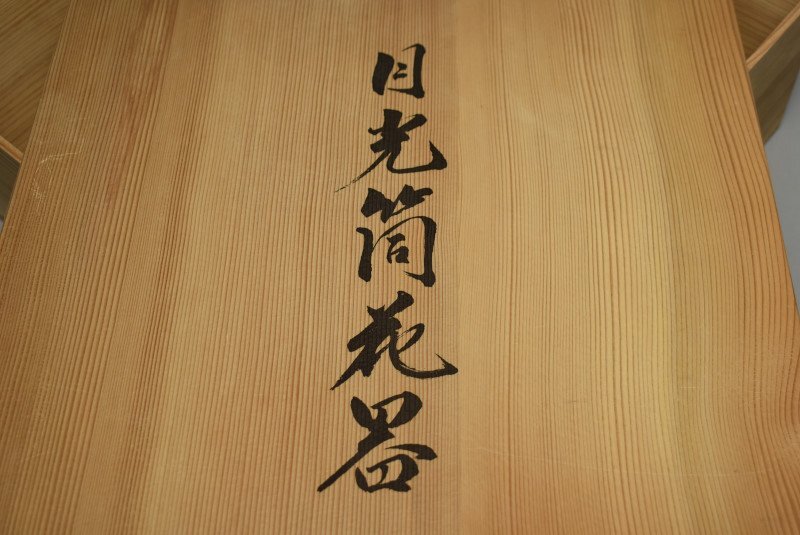 月光筒花器